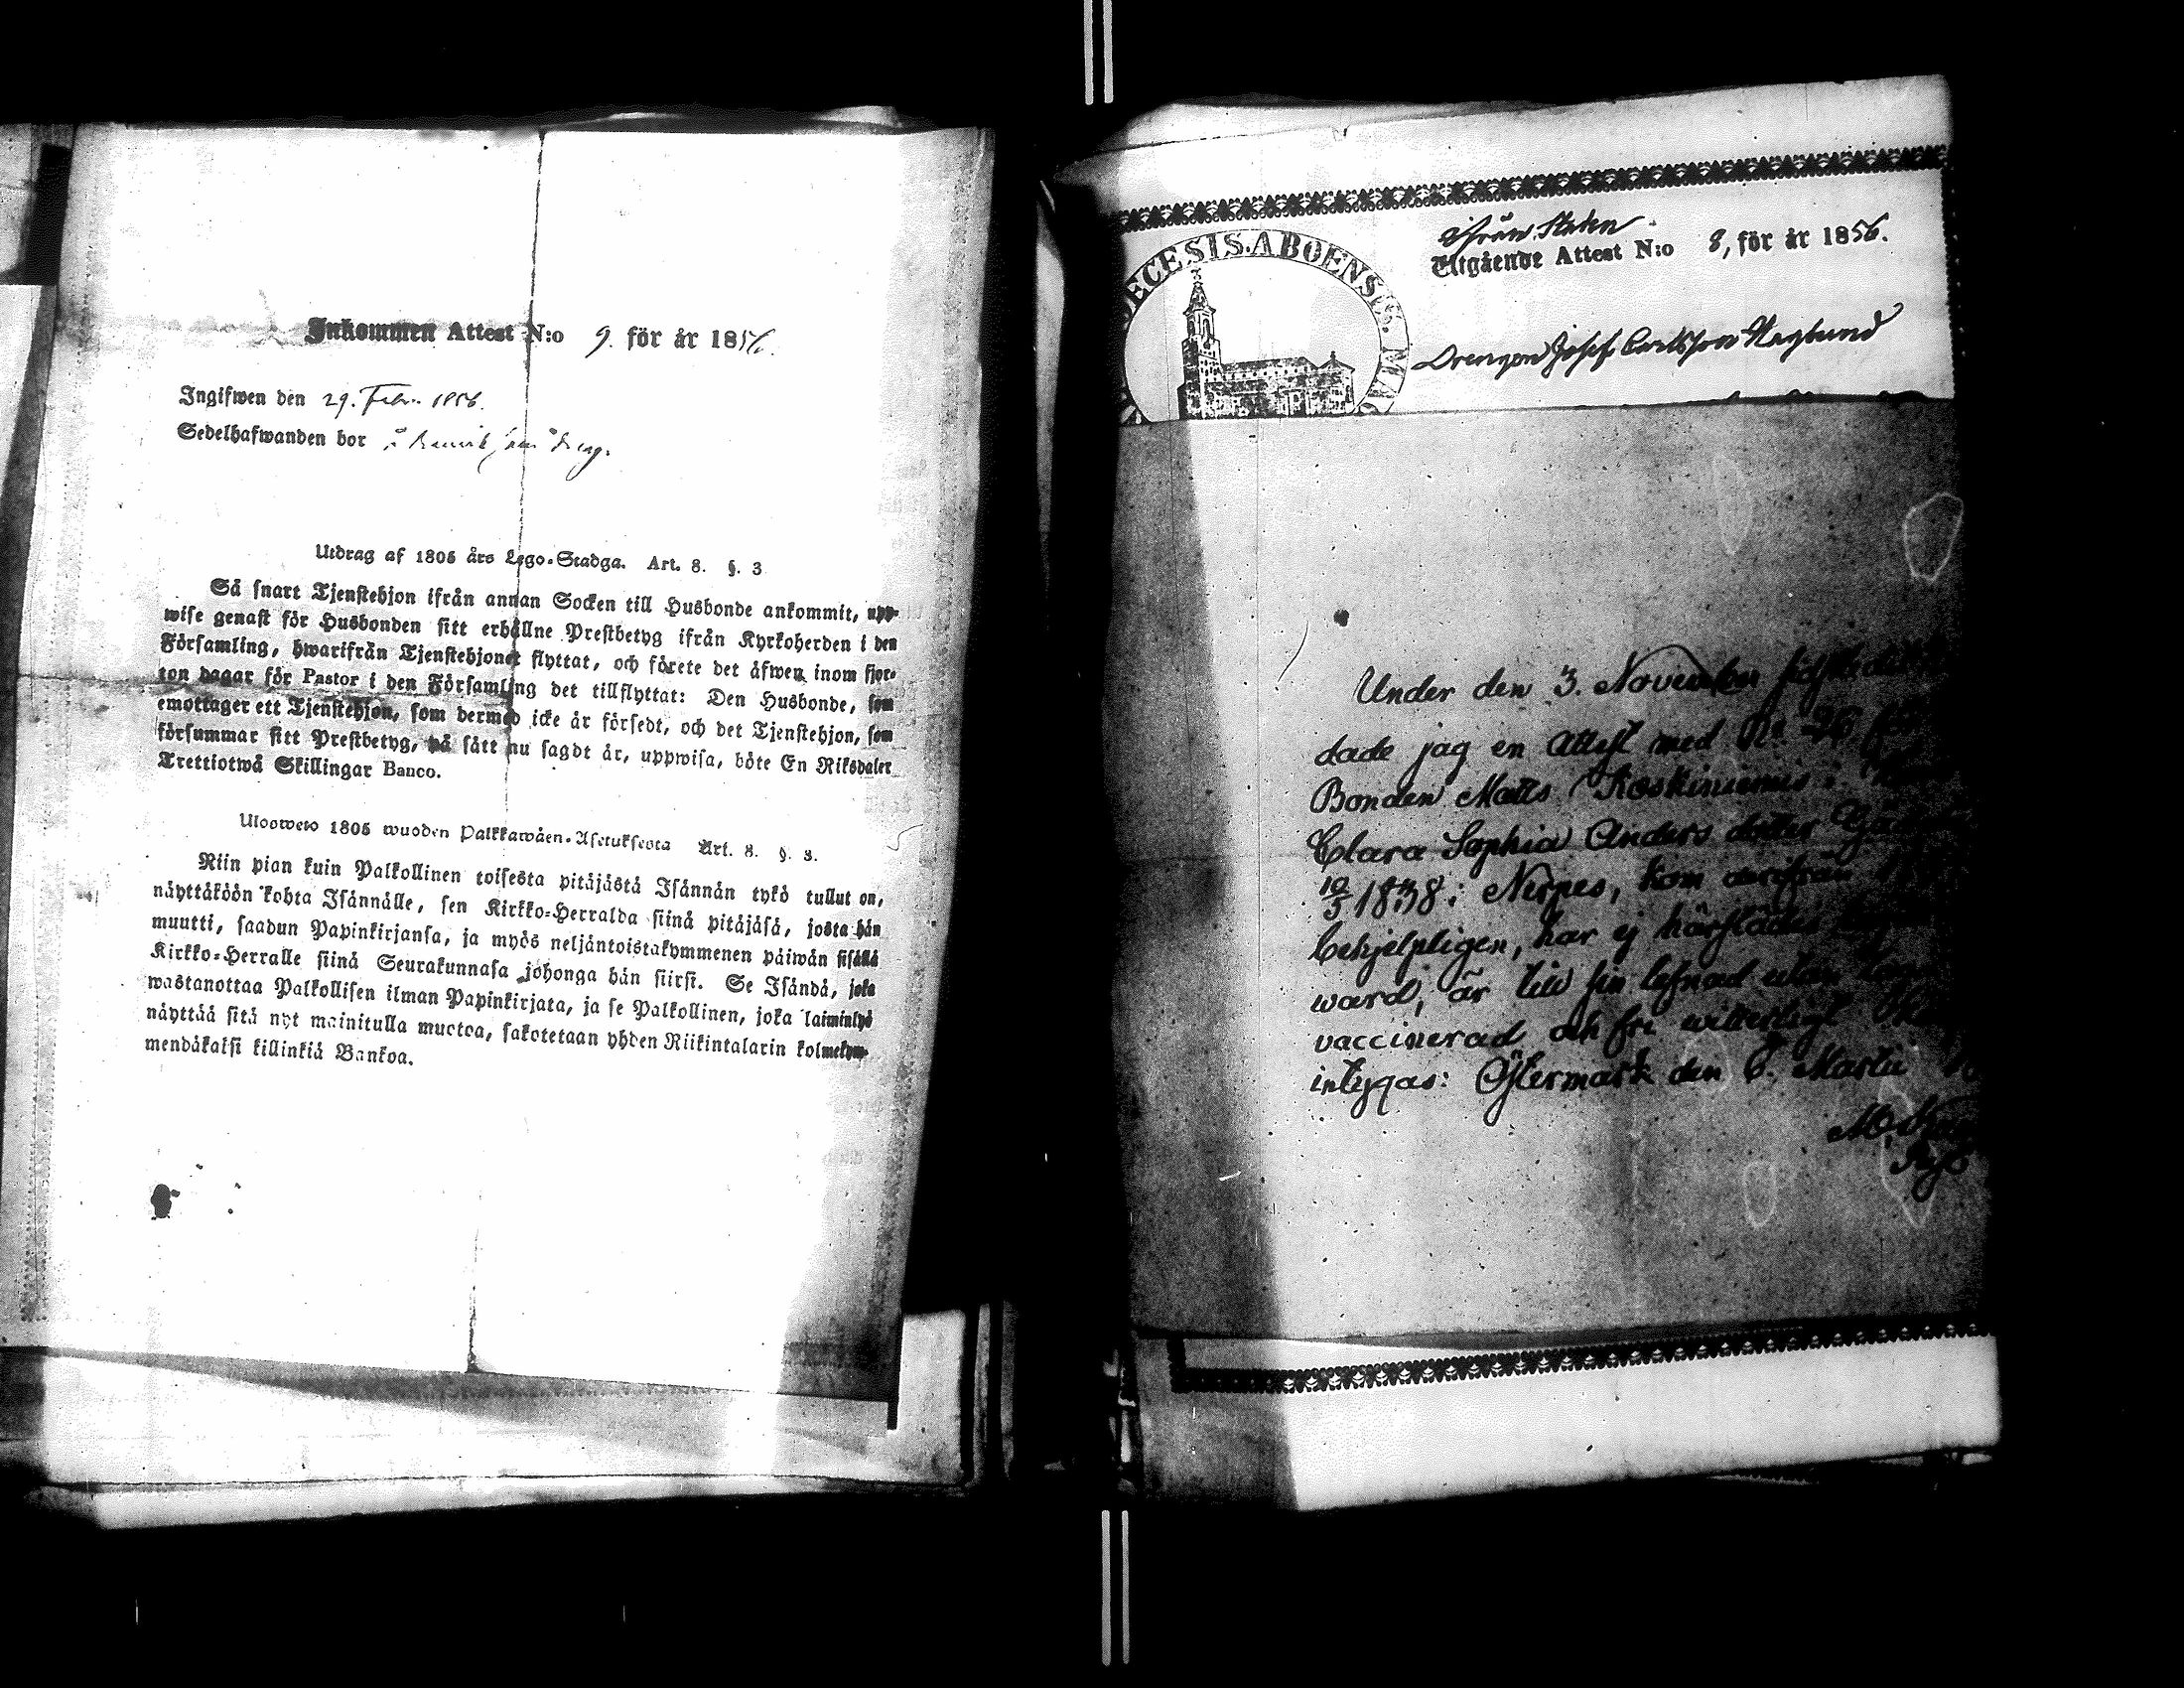 Inkommen Attest N:o 9. för år 1856.
Ingifwen den 29. Febr. 1856.
Sedelhafwanden bor
Utdrag af 1805 års Lego-Stadga. Art. 8. §. 3
Så snart Tjenstehjon ifrån annan Socken till Husbonde ankommit, upp-
wise genast för Husbonden sitt erhållne Prestbetyg ifrån Kyrkoherden i den
Församling, hwarifrån Tjenstehjonet flyttat, och förete det äfwen inom fjor-
ton dagar för Pastor i den Församling det tillflyttat: Den Husbonde, som
emottager ett Tjenstehjon, som dermed icke är försedt, och det Tjenstehjon, som
försummar sitt Prestbetyg, på sätt nu sagdt är, uppwisa, böte En Riksdaler
Trettiotwå Skillingar Banco.
Ulosweto 1805 wuoden Palkkawäen-Asetuksesta Art. 8. §. 3.
Niin pian kuin Palkollinen toisesta pitäjästä Isännän tykö tullut on,
näyttäköön kohta Isännälle, sen Kirkko-Herralda siinä pitäjäsä, josta hän
muutti, saadun Papinkirjansa, ja myös neljäntoistakymmenen päiwän sisällä
Kirkko-Herralle siinä Seurakunnasa johonga hän siirsi. Se Isändä, joka
wastanottaa Palkollisen ilman Papinkirjata, ja se Palkollinen, joka laiminlyö
näyttää sitä nyt mainitulla muotoa, sakotetaan yhden Riikintalarin kolmekym-
mendäkaksi killinkiä Bankoa.
ECESIS.ABOENSIS.MAG
ifrån Staden
Utgående Attest N:o 8, för år 1856.
Drengen Josef Carlsson Haglund
Under den 3. November
dade jag en Attest med No 26
Bonden Matts Koskinienis
Clara Sophia Anders dotter
10/3 1838 i Nerpes, kom derifrån
behjelpligen, har ej härstädes
ward, är till sin lefnad utan
vaccinerad och fri witterligt
intygas: Östermark den 6. Martii
M.